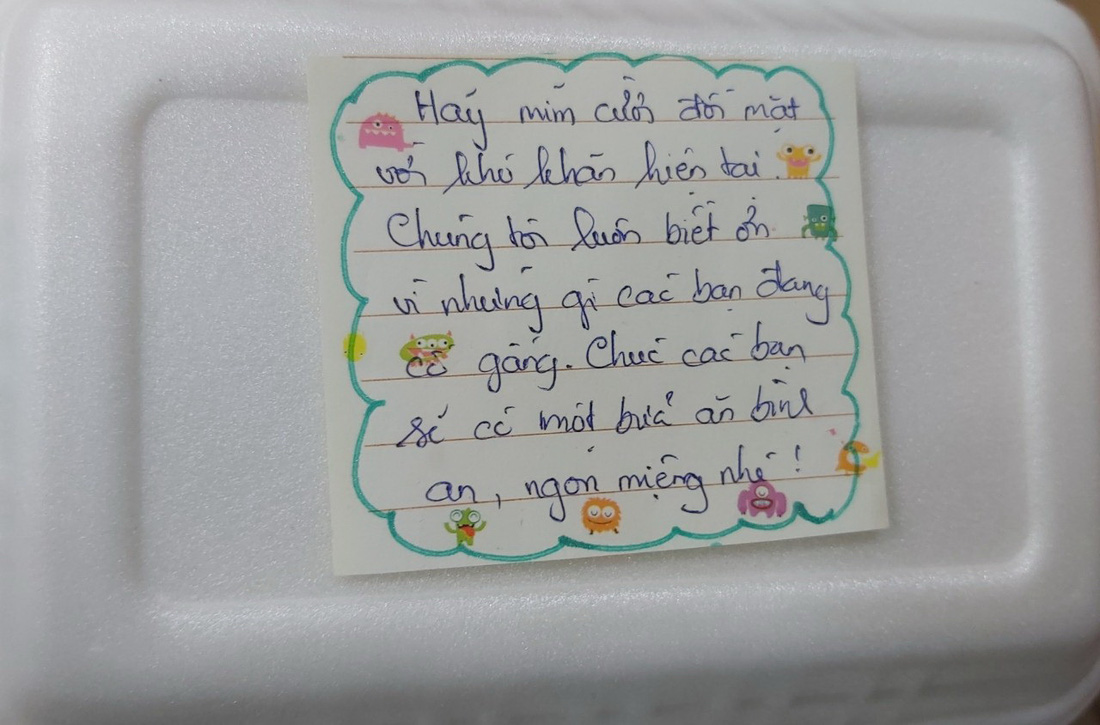 Hãy mỉm cười đối mặt
với khó khăn hiện tại.
Chúng tôi luôn biết ơn
vì những gì các bạn đang
cố gắng. Chúc các bạn
sẽ có một bữa ăn bình
an, ngon miệng nhé!